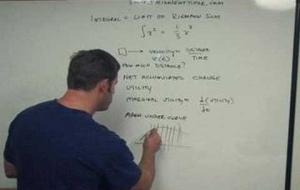 INTEGRAL = LIMIT OF RIEMANN SUM
∫x² = 1/3 x³
□ → VELOCITY = DISTANCE / TIME
V(t)
HOW MUCH DISTANCE?
NET ACCUMULATED CHANGE
UTILITY
MARGINAL UTILITY = d(UTILITY)
AREA UNDER CURVE